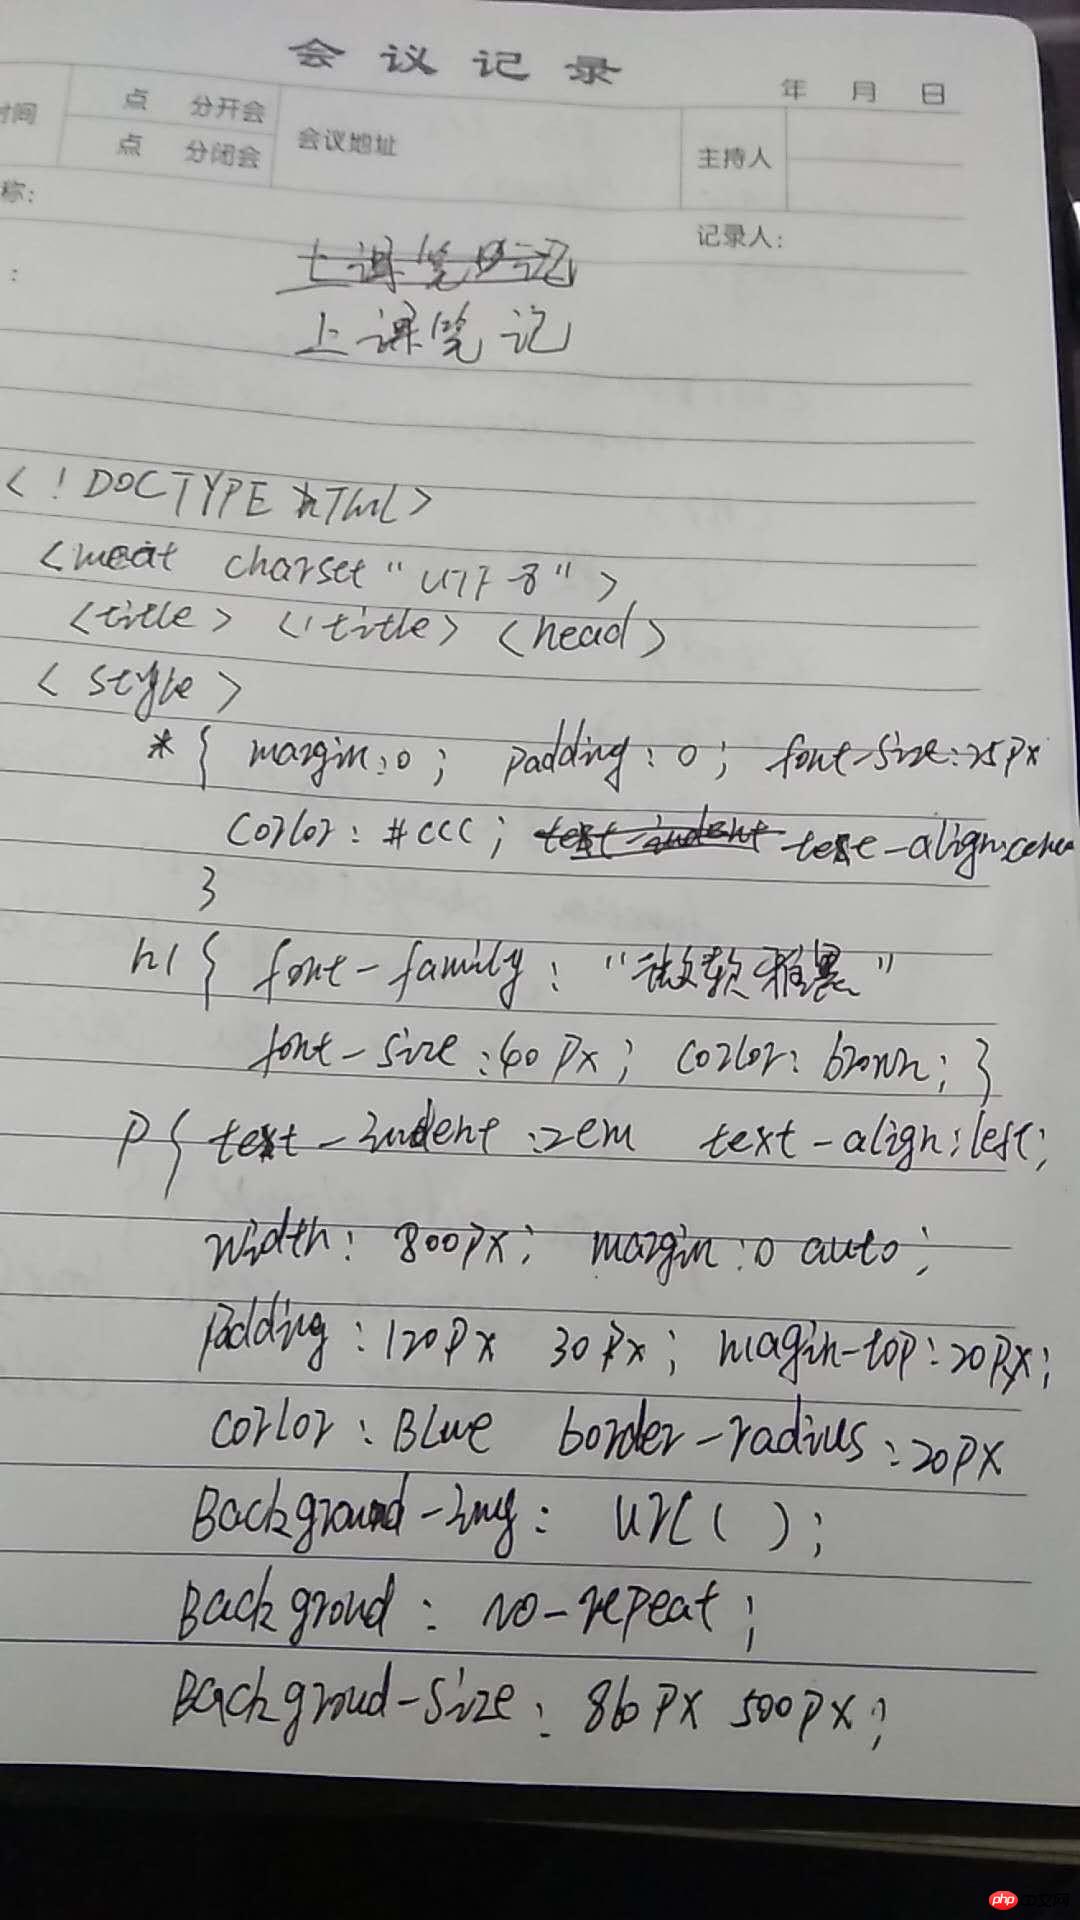 会议记录
年 月 日
时间 点 分开会 会议地址 主持人
点 分闭会
称:
记录人:
:
上课笔记
上课笔记
<!DOCTYPE hTml>
<meat charset "UTF-8">
<title> </title> <head>
<style>
*{ margin:0; padding:0; font-size:25px
Corlor: #ccc; text-indent text-align:cen
}
h1{ font-family: "微软雅黑"
font-size:60px; corlor: brown; }
P{ text-indent:2em text-align:left;
width: 800px; margin:0 auto;
Padding:120px 30px; margin-top:20px;
corlor: BLue border-radius:20px
Background-img: url( );
Backgroud: no-repeat;
Backgroud-size: 860px 500px;
php中文网